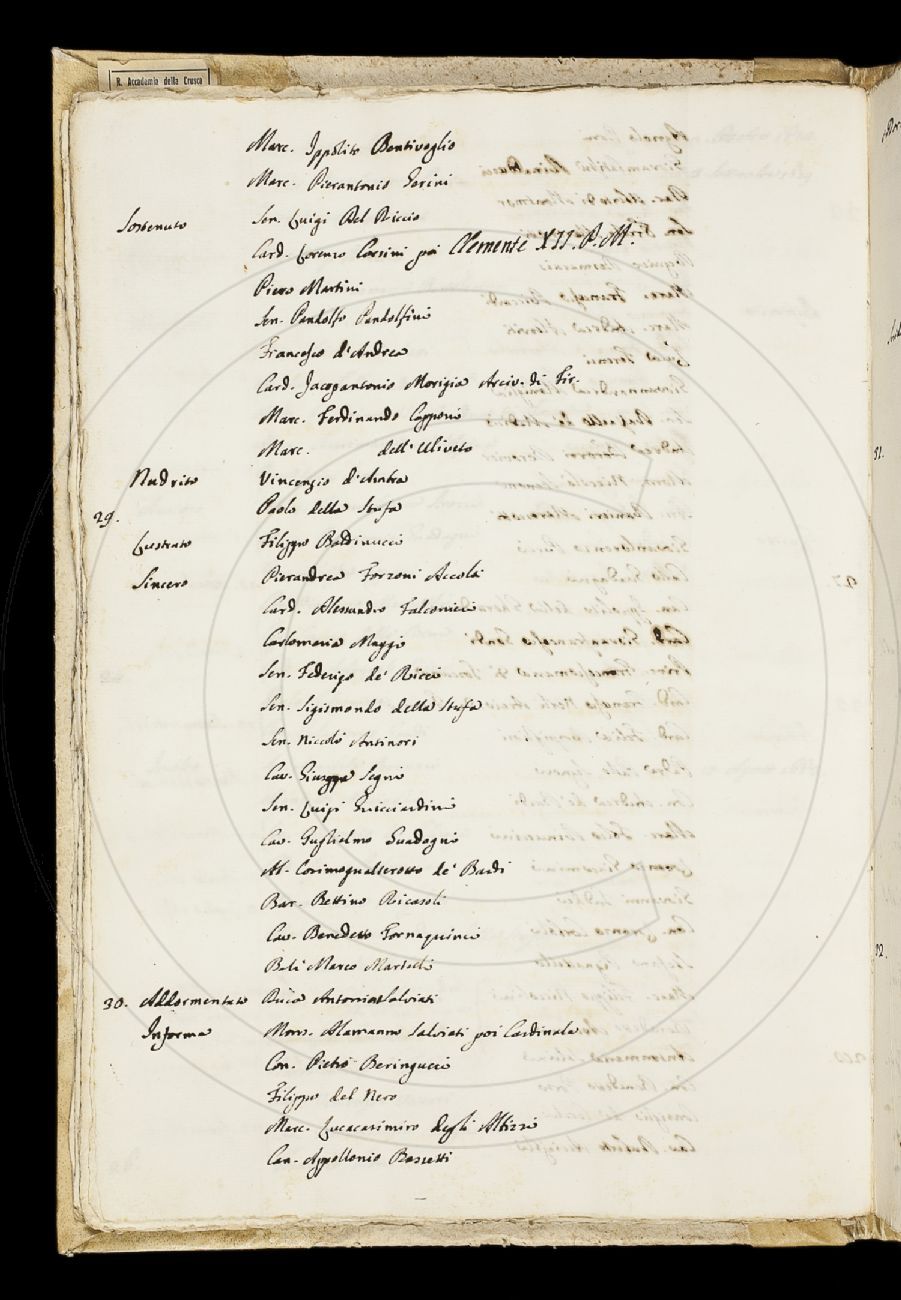 R. Accademia della Crusca
Marc. Ippolito Bentivoglio
Marc. Pierantonio Gerini
Sostenuto Sen. Luigi Del Riccio
Card. Lorenzo Corsini poi Clemente XII. P. M.
Piero Martini
Sen. Pandolfo Pandolfini
Francesco d'Andrea
Card. Jacopantonio Morigia Arciv. di Fir.
Marc. Ferdinando Capponi
Marc. dell'Uliveto
Nudrito Vincenzio d'Ambra
29. Paolo della Stufa
Lustrato Filippo Baldinucci
Sincero Pierandrea Forzoni Accolti
Card. Alessandro Falconieri
Carlomaria Maggi
Sen. Federigo de' Ricci
Sen. Sigismondo della Stufa
Sen. Niccolò Antinori
Cav. Giuseppe Segni
Sen. Luigi Guicciardini
Cav. Guglielmo Guadagni
M. Cosimogualterotto de' Bardi
Bar. Bettino Ricasoli
Cav. Benedetto Fornaquinci
Balì Marco Martelli
30. Addormentato Duca Antonio Salviati
Informe Mons. Alamanno Salviati poi Cardinale
Con. Pietro Beringucci
Filippo del Nero
Marc. Lucacasimiro degli Albizzi
Can. Appollonio Bassetti
31.
32.